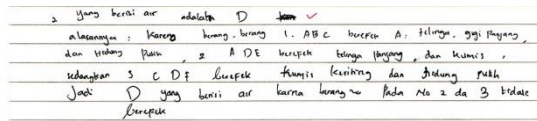 2 yang berisi air adalah D
alasannya : Karena barang-barang 1. ABC berefek A: telinga, gigi panjang,
dan hidung putih, 2 A DE berepek telinga panjang, dan kumis,
sedangkan 3 C D F berepek kumis keriting dan hidung putih
Jadi D yang berisi air karna barang~ Pada No 2 da 3 tidak
berepek